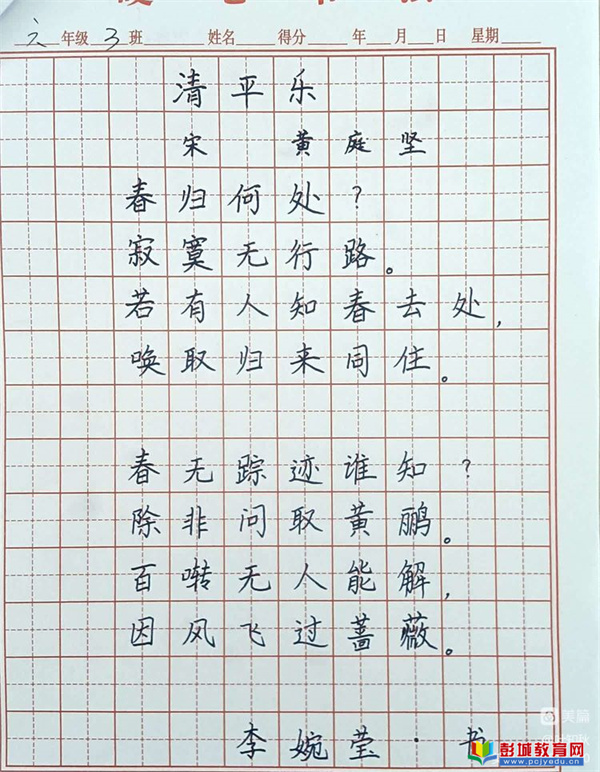 六年级3班 姓名 得分 年 月 日 星期
清平乐
宋 黄庭坚
春归何处?
寂寞无行路。
若有人知春去处,
唤取归来同住。
春无踪迹谁知?
除非问取黄鹏。
百啭无人能解,
因风飞过蔷薇。
李婉莹:书
美篇
彭城教育网
www.pcjyedu.cn